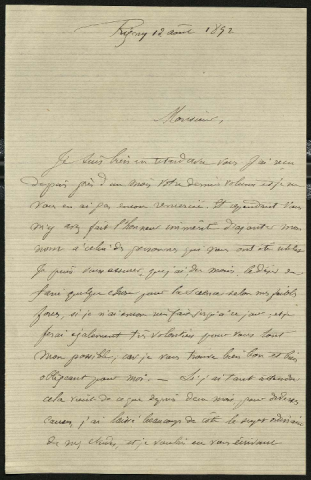 Rigny 12 août 1892
Monsieur,
Je suis bien en retard avec vous. J'ai reçu
depuis près d'un mois votre dernier volume et je ne
vous en ai pas encore remercié. Et cependant vous
m'y avez fait l'honneur immérité d'ajouter mon
nom à celui des personnes qui vous ont été utiles.
Je puis vous assurer que j'ai du moins le désir de
faire quelque chose pour la selon mes faibles
forces, si je n'ai encore rien fait jusqu'à ce jour, et je
ferai également très volontiers pour vous tout
mon possible, car je vous trouve bien bon et bien
obligeant pour moi. — Si j'ai tant attendu
cela vient de ce que depuis deux mois pour diverses
causes, j'ai laissé beaucoup de côté le sujet ordinaire
de mes études, et je voulais en vous écrivant